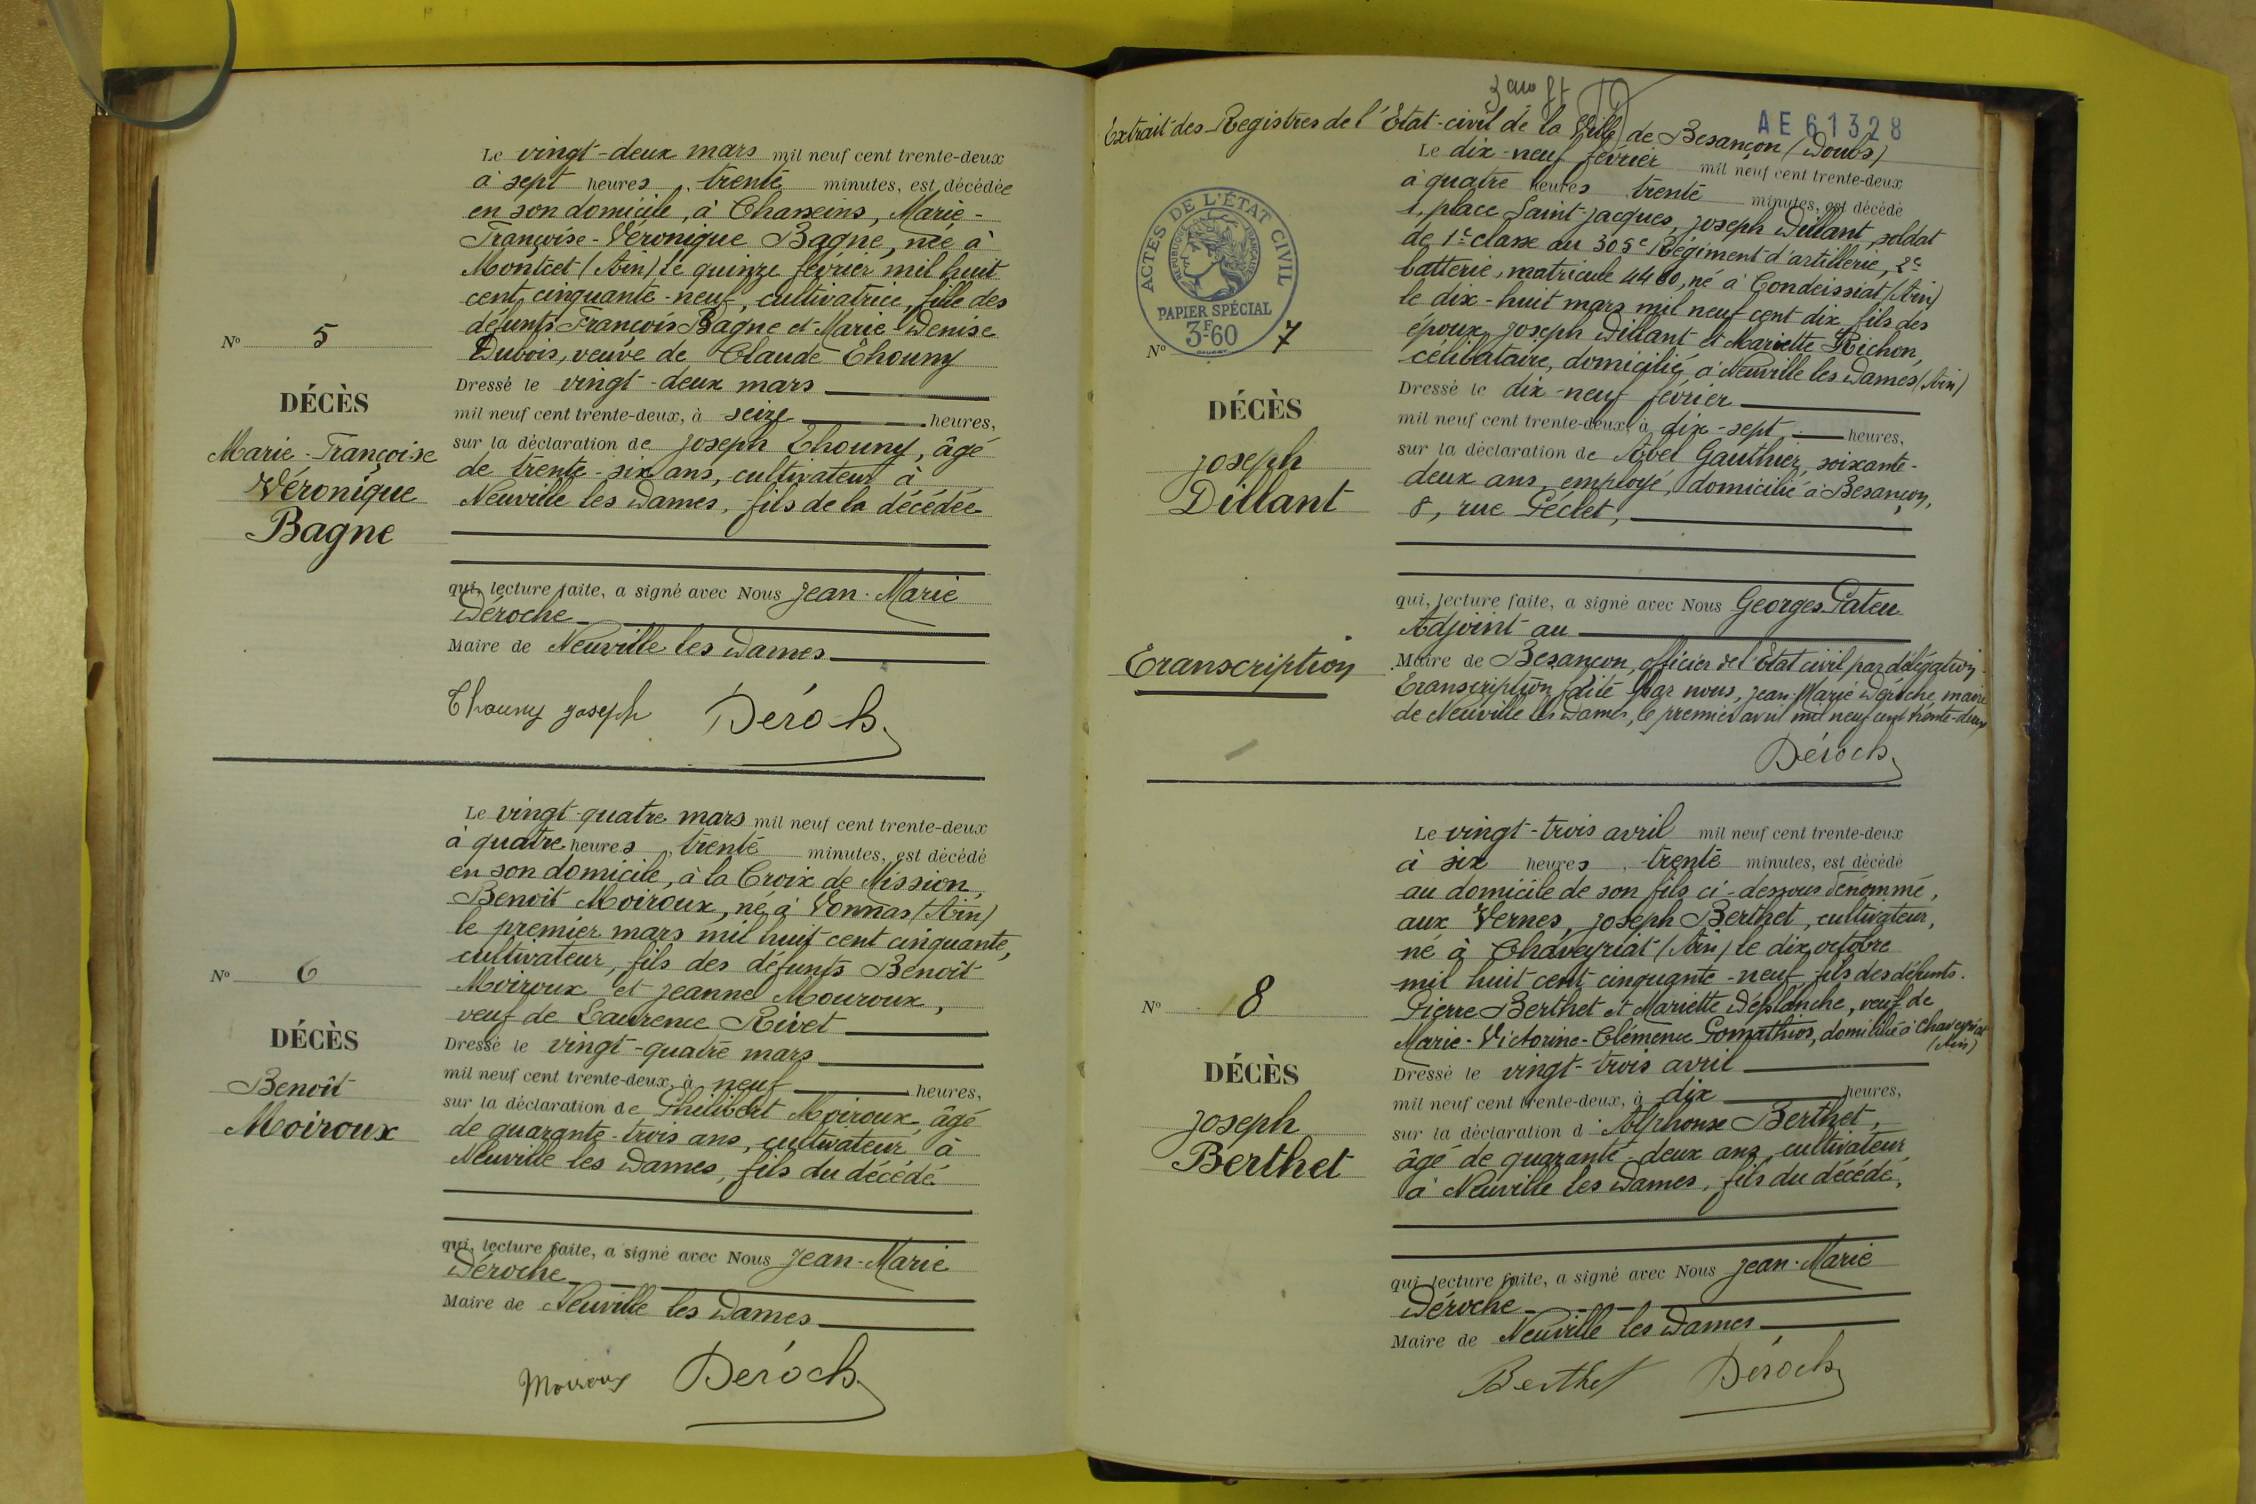 Le vingt-deux mars mil neuf cent trente-deux
à sept heures trente minutes, est décédée
en son domicile, à Chanseins, Marie-
Françoise-Véronique Bagne, née à
Montcet (Ain) le quinze février mil huit
cent cinquante-neuf, cultivatrice, fille des
défunts François Bagne et Marie-Denise
Dubois, veuve de Claude Thouny
N° 5
DÉCÈS
Marie-Françoise
Véronique
Bagne
Dressé le vingt-deux mars
mil neuf cent trente-deux, à seize heures,
sur la déclaration de Joseph Thouny, âgé
de trente-six ans, cultivateur à
Neuville les Dames, fils de la décédée
qui, lecture faite, a signé avec Nous Jean-Marie
Déroche
Maire de Neuville les Dames
Thouny Joseph Déroch
Le vingt-quatre mars mil neuf cent trente-deux
à quatre heures, trente minutes, est décédé
en son domicile, à la Croix de Mission,
Benoît Moiroux, né à Vonnas (Ain)
le premier mars mil huit cent cinquante,
cultivateur, fils des défunts Benoît
Moiroux et Jeanne Mouroux,
veuf de Laurence Rivet
N° 6
DÉCÈS
Benoît
Moiroux
Dressé le vingt-quatre mars
mil neuf cent trente-deux, à neuf heures,
sur la déclaration de Philibert Moiroux, âgé
de quarante-trois ans, cultivateur à
Neuville les Dames, fils du décédé
qui, lecture faite, a signé avec Nous Jean-Marie
Déroche
Maire de Neuville les Dames
Moiroux Déroch
3 ans
Extrait des Registres de l'Etat-civil de la Ville de Besançon (Doubs)
AE 61328
Le dix-neuf février mil neuf cent trente-deux
à quatre heures trente minutes, est décédé
1, place Saint-Jacques, Joseph Dillant, soldat
de 1e classe au 305e Régiment d'artillerie, 2e
batterie, matricule 4460, né à Condeissiat (Ain)
le dix-huit mars mil neuf cent dix, fils des
époux Joseph Dillant et Mariette Richon,
célibataire, domicilié à Neuville les Dames (Ain)
ACTES DE L'ÉTAT CIVIL
RÉPUBLIQUE FRANÇAISE
PAPIER SPÉCIAL
3F60
N° 7
DÉCÈS
Joseph
Dillant
Transcription
Dressé le dix-neuf février
mil neuf cent trente-deux, à dix-sept heures,
sur la déclaration de Abel Gauthier, soixante-
deux ans, employé, domicilié à Besançon,
8, rue Péclet,
qui, lecture faite, a signé avec Nous Georges Pateu
Adjoint au
Maire de Besançon, officier de l'Etat civil par délégation
Transcription faite par nous, Jean-Marie Déroche, maire
de Neuville les Dames, le premier avril mil neuf cent trente-deux
Déroch
Le vingt-trois avril mil neuf cent trente-deux
à six heures, trente minutes, est décédé
au domicile de son fils ci-dessous dénommé,
aux Vernes, Joseph Berthet, cultivateur,
né à Chaveyriat (Ain) le dix octobre
mil huit cent cinquante-neuf, fils des défunts
Pierre Berthet et Mariette Déplanche, veuf de
Marie-Victorine-Clémence Gomathios, domicilié à Chaveyriat
(Ain)
N° 8
DÉCÈS
Joseph
Berthet
Dressé le vingt-trois avril
mil neuf cent trente-deux, à dix heures,
sur la déclaration d'Alphonse Berthet,
âgé de quarante-deux ans, cultivateur
à Neuville les Dames, fils du décédé,
qui, lecture faite, a signé avec Nous Jean-Marie
Déroche
Maire de Neuville les Dames
Berthet Déroch